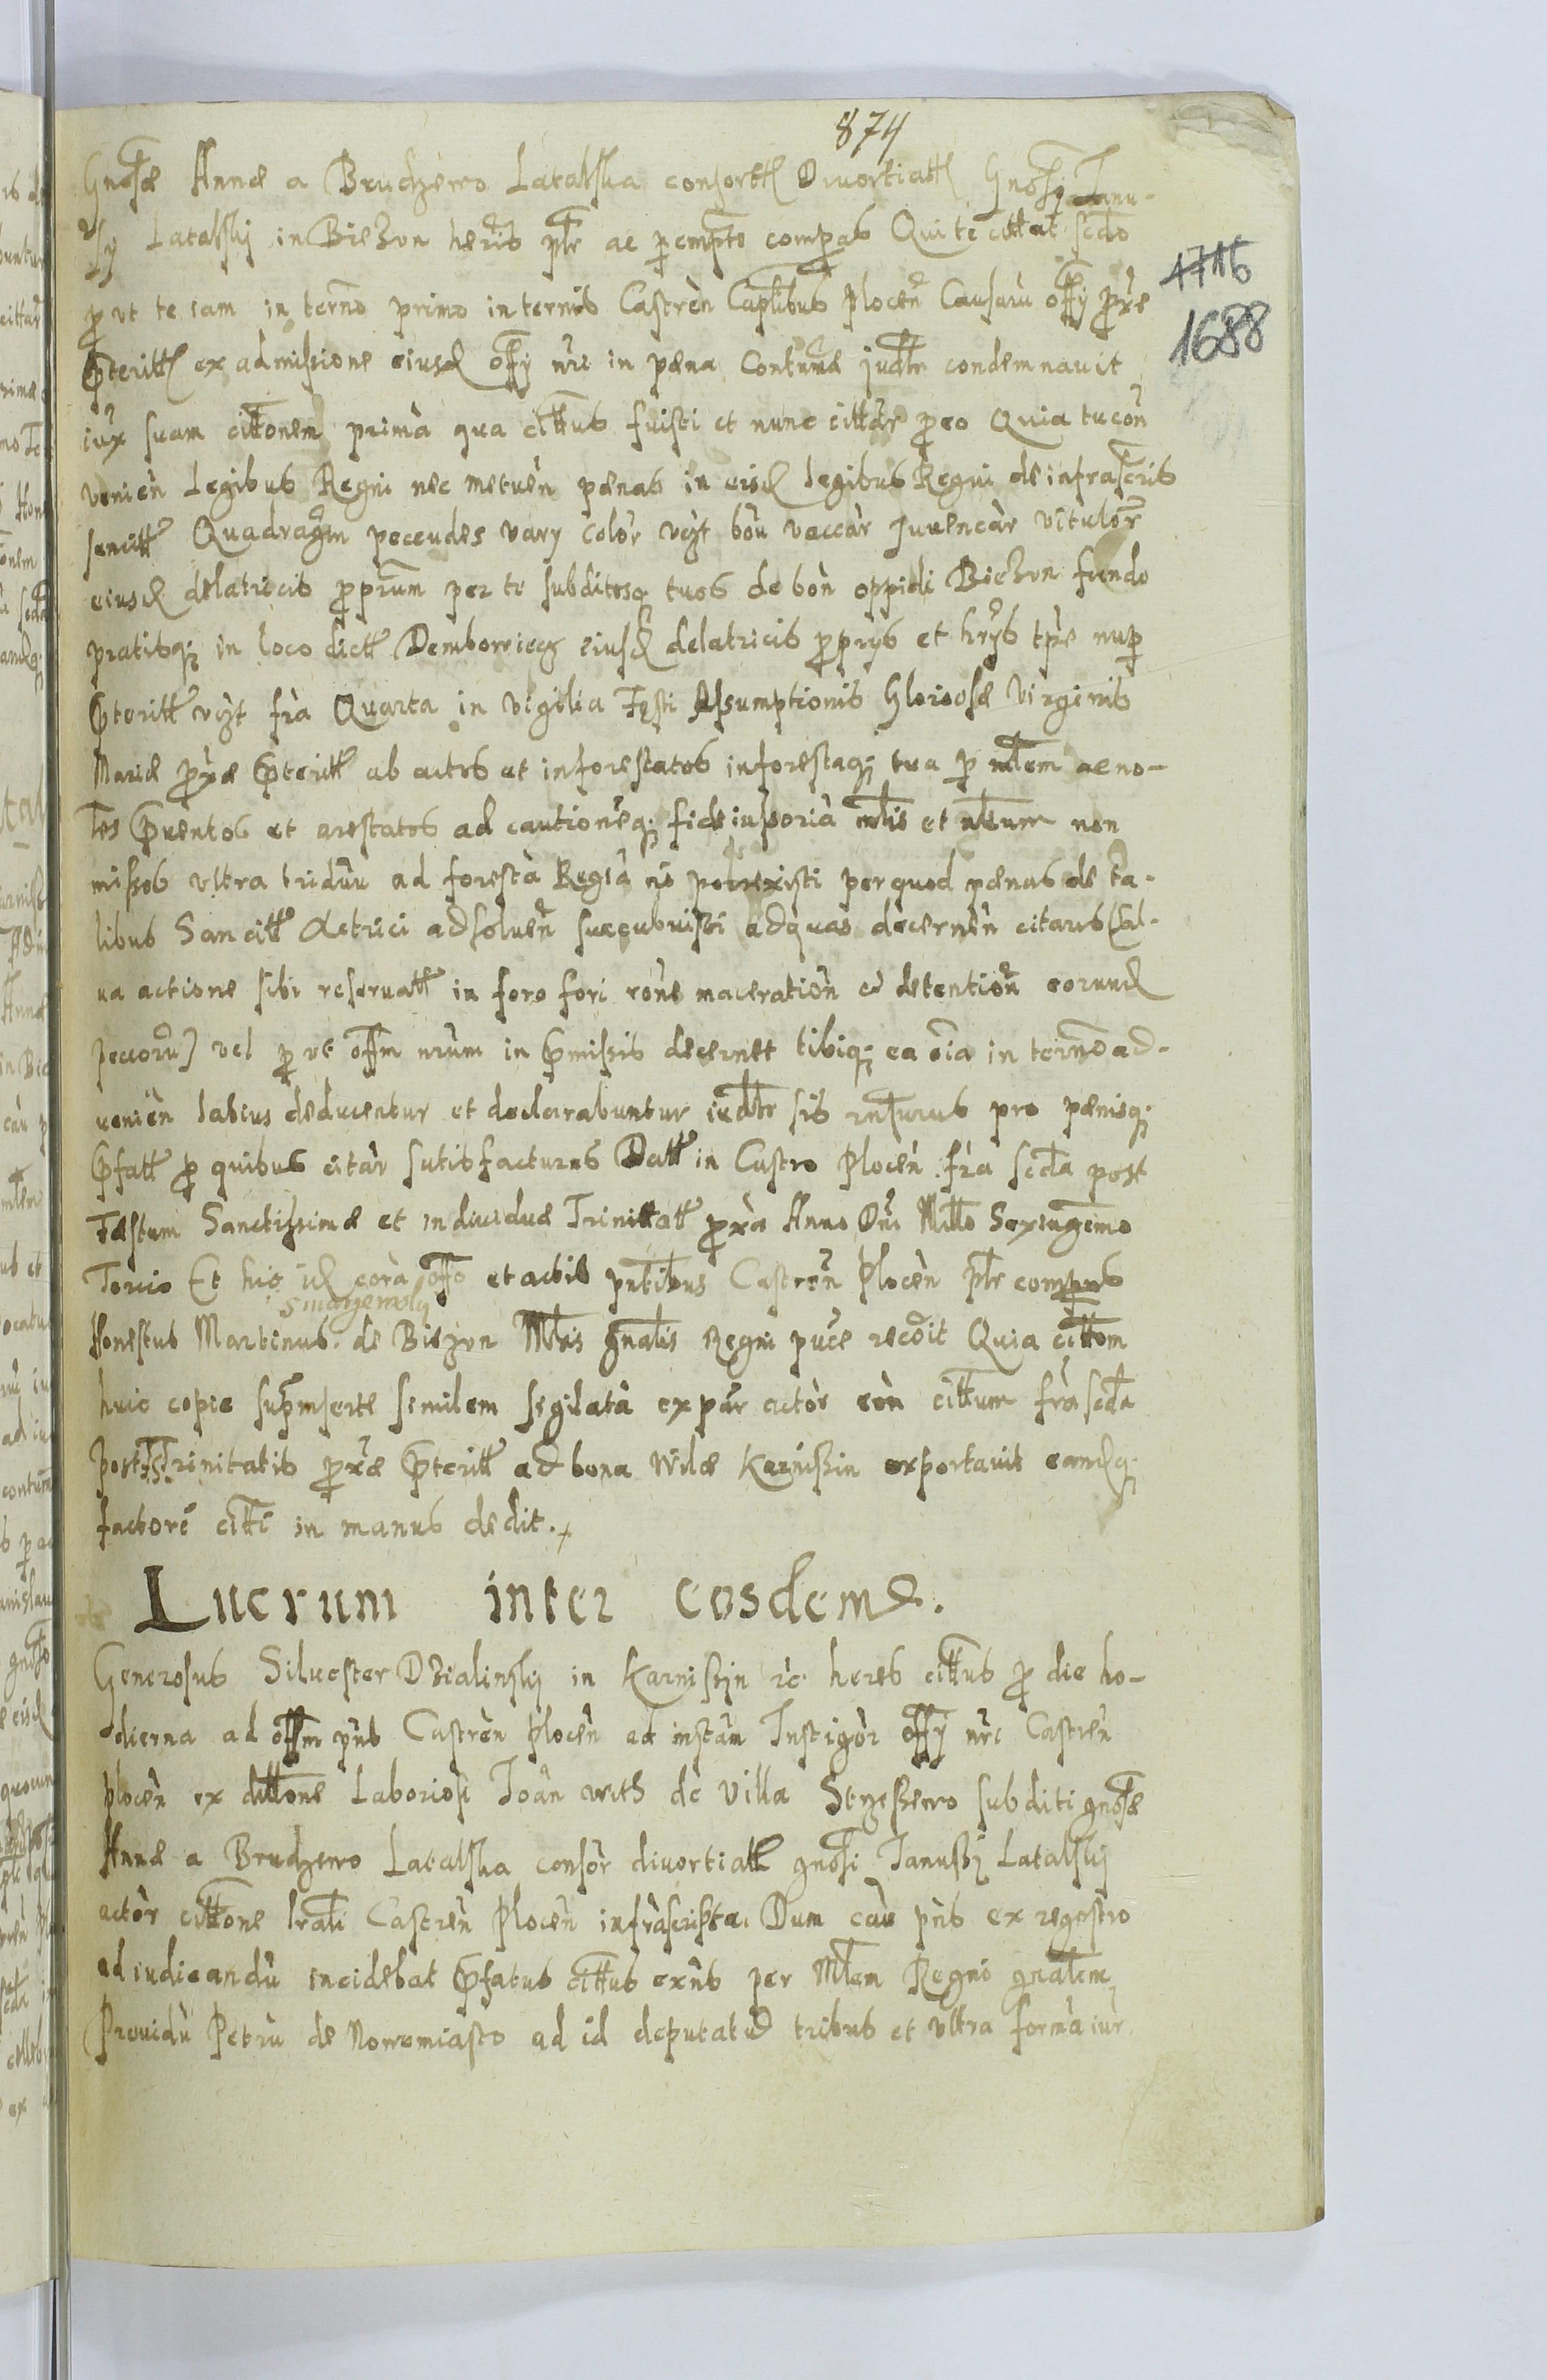 874
Gnosæ Annæ a Brudzewo Latalska consortt Diuortiatt Gnosi Janu-
sy Latalskj in Biezvn heris ptr ac pempto compas Qui te cittat scdo
p vt te iam in terno primo in ternis Castren Caplibus Plocen Causaru offy pxe
Pteritt ex admissione eiusd offy nri in pæna Contumæ judtr condemnauit
iux suam cittonem prima qua cittus fuisti et nunc cittare peo Quia tu con
venien Legibus Regni nec metuen pænas in eisd legibus Regni de infrascris
sancitt Quadragin peccudes vary color vczt bou vaccar Juuencar vitulor
eiusd delatricis pprum per te subditosq tuos de bon oppidi Biezvn fundo
pratisq in loco dictt Demborriecz eiusd delatricis pprys et hrys tpre nup
Pteritt vczt fra Quarta in vigilia Festi Assumptionis Gloriosæ Virginis
Mariæ pxæ Pteritt ab actos et inforestatos inforestaq tua p mltem ac no-
les Puentos et arestatos ad cautioneq fideiussoria mltis et nltum non
missos vltra triduu ad foresta Regia no porrexisti per quod pænas de ta-
libus Sancitt Actrici adsoluen succubuisti ad quas decernen citaris (sal-
ua actione sibi reseruatt in foro fori rone maceration et detention eorund
peccoru) vel p vt offm nrum in Pmissis decernet tibiq ea oia in terno ad-
uenien latius deducentur et declarabuntur iudtr sis rnsurus pro pænisq
Pfatt p quibus citar satisfacturus Datt in Castro Plocen fra scda post
Festum Sanctissimæ et indiuiduæ Trinitatt pxa Anno Dni Millo Sexcagemo
Tercio Et hic id cora offo et actis pntibus Castren Plocen ptr comparus
Smarzewsky
Honestus Martinus de Biezvn Mltis gnalis Regni puce recoit Quia cittom
huic copie supinserte similem sigilata ex par actor con cittum fra scda
post SS. Trinitatis pxæ Pteritt ad bona Wilæ Karnißin exportauit eandq
factori citti in manus dedit.
Lucrum inter eosdem.
Generosus Siluester Dzialinskj in Karnißyn rc heres cittus p die ho-
dierna ad offm pns Castren Plocen ad instan Instigor offy nri Castren
Plocen ex dittone Laboriosi Joan with de Villa Strzeßewo subditi gnosæ
Annæ a Brudzewo Latalska consor diuortiatt gnosi Janußy Latalskj
actor cittone lrali Castren Plocen infrascripta. Dum cau pns ex regestro
ad iudicandu incidebat Pfatus cittus exns per Mltem Regni gnalem
Prouidu Petru de Nowemiasto ad id deputatu tribus et vltra forma iur
1716
1688